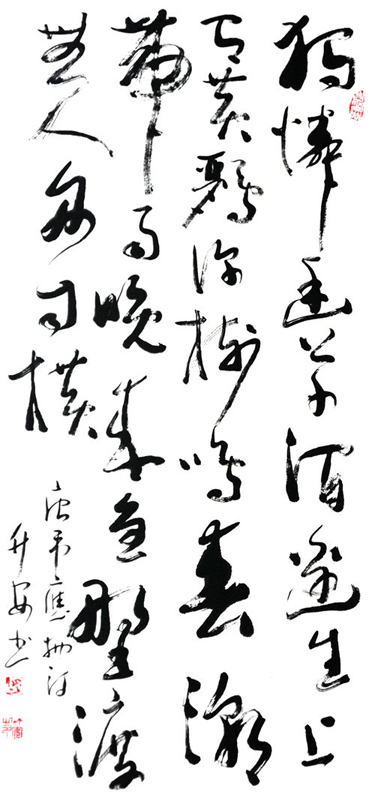 獨憐幽草澗邊生上
有黄鸝深樹鳴春潮
帶雨晚来急野渡
無人舟自横
唐韦應物诗
升安书